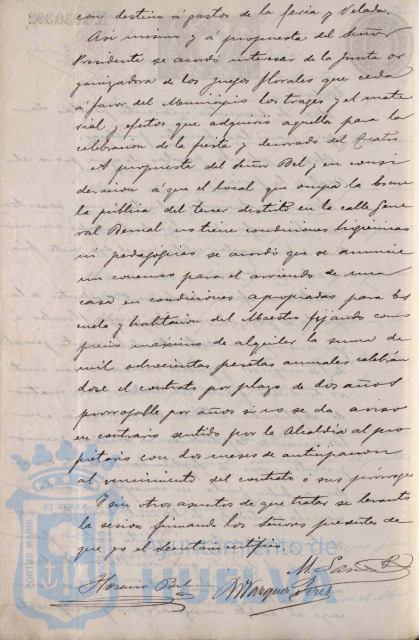 con destino á gastos de la feria y Velada.
Asi mismo y á propuesta del Señor
Presidente se acordó interesar de la Junta or
ganizadora de los Juegos florales que ceda
á favor del Municipio los trages y el mate
rial y efectos que adquirió aquella para la
celebracion de la fiesta y decorado del Teatro.
A propuesta del Señor Bel, y en consi
deracion á que el local que ocupa la Escue
la pública del tercer distrito en la calle Gene
ral Bernal no tiene condiciones higienicas
ni pedagógicas se acordó que se anuncie
un concurso para el arriendo de una
casa en condiciones apropiadas para Es
cuela y habitacion del Maestro fijando como
precio maximo de alquiler la suma de
mil ochocientas pesetas annales celebran
dose el contrato por plazo de dos años
prorrogable por años si no se da aviso
en contrario sentido por la Alcaldia al pro
pietario con dos meses de anticipacion
al vencimiento del contrato ó sus prórrogas
Y sin otros asuntos de que tratar se levantó
la sesion firmando los Señores presentes de
que yo el Secretario certifico.
M. Garcia
Bel
Marquez
PORTUS MARIS ET TERRAE CUSTODIA
Ayuntamiento de
HUELVA